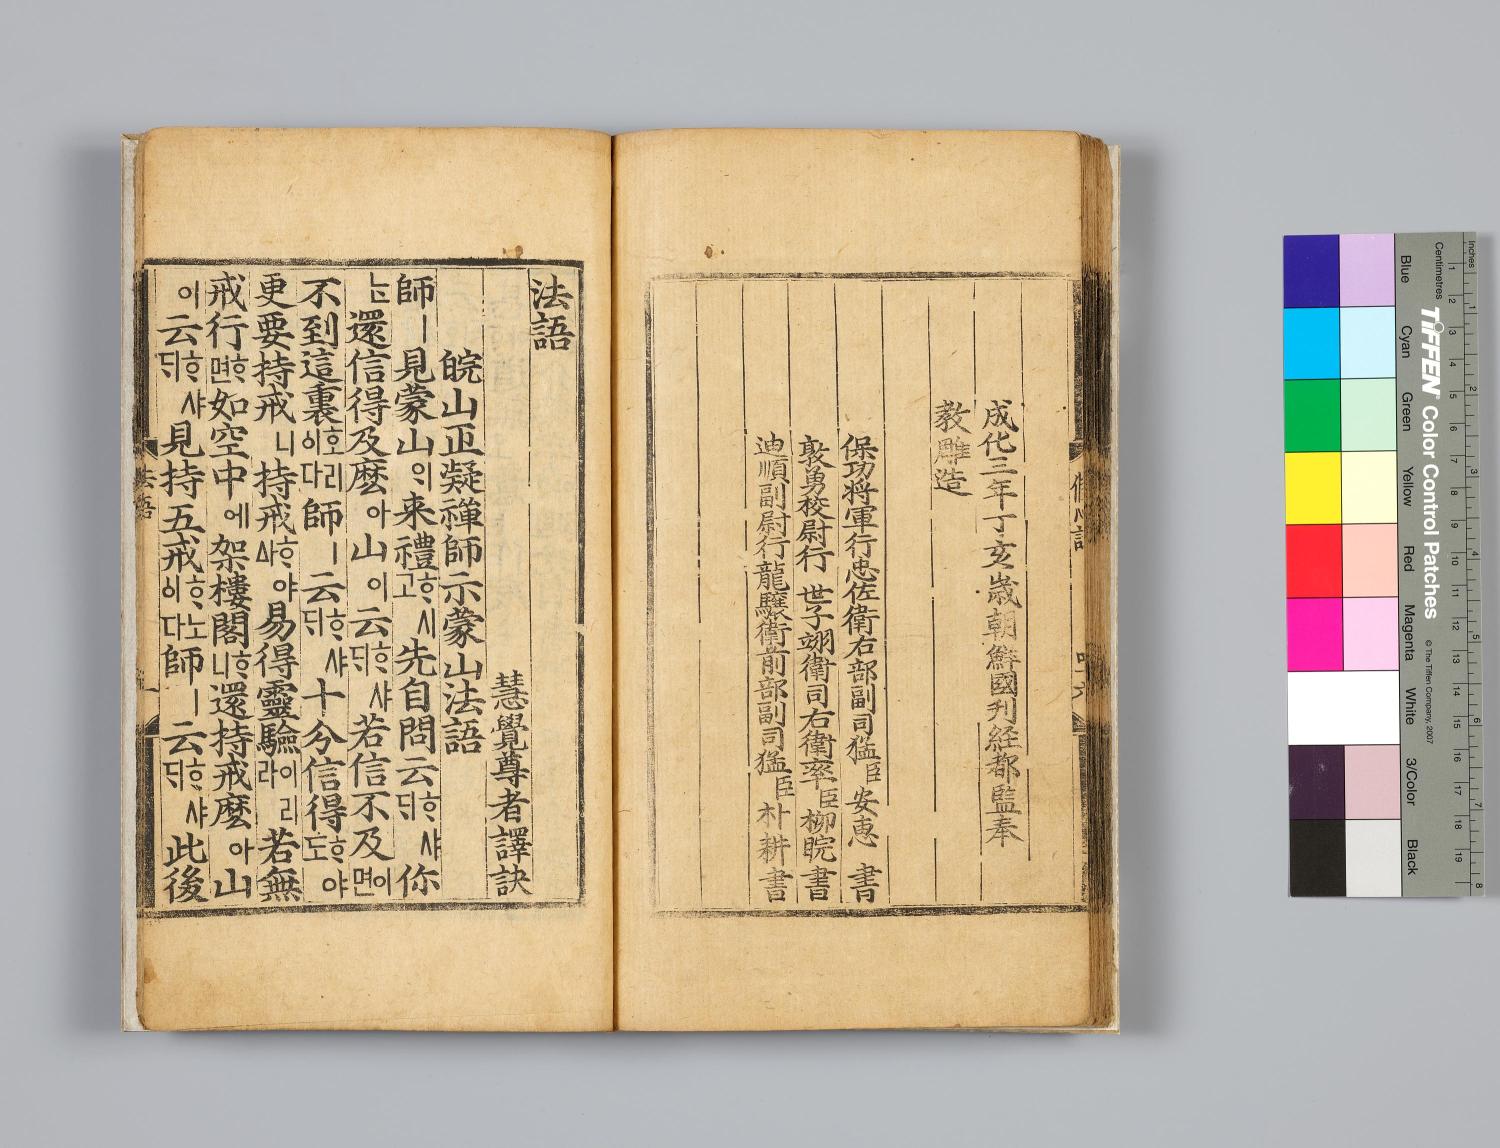 修心訣
成化三年丁亥歲朝鮮國刊経都監奉
教雕造
保功将軍行忠佐衛右部副司猛臣安惠書
敦勇校尉行世子翊衛司右衛率臣柳睆書
迪順副尉行龍驤衛前部副司猛臣朴耕書
法語
慧覺尊者譯訣
皖山正凝禪師示蒙山法語
師ㅣ見蒙山이来禮ᄒᆞ시고先自問云ᄒᆞ샤ᄃᆡ你
ᄂᆞᆫ還信得及麽아山이云ᄒᆞ샤ᄃᆡ若信不及이면
不到這裏ᄒᆞ리이다師ㅣ云ᄒᆞ샤ᄃᆡ十分信得ᄒᆞ야도
更要持戒니持戒ᄒᆞ야ᅀᅡ易得靈驗이리라若無
戒行ᄒᆞ면如空中에架樓閣ᄒᆞ니還持戒麽아山
이云ᄒᆞ샤ᄃᆡ見持五戒ᄒᆞ노이다師ㅣ云ᄒᆞ샤ᄃᆡ此後
法語
Inches
1 2 3 4 5 6 7 8
Centimetres
1 2 3 4 5 6 7 8 9 10 11 12 13 14 15 16 17 18 19
TIFFEN® Color Control Patches
© The Tiffen Company, 2007
Blue
Cyan
Green
Yellow
Red
Magenta
White
3/Color
Black